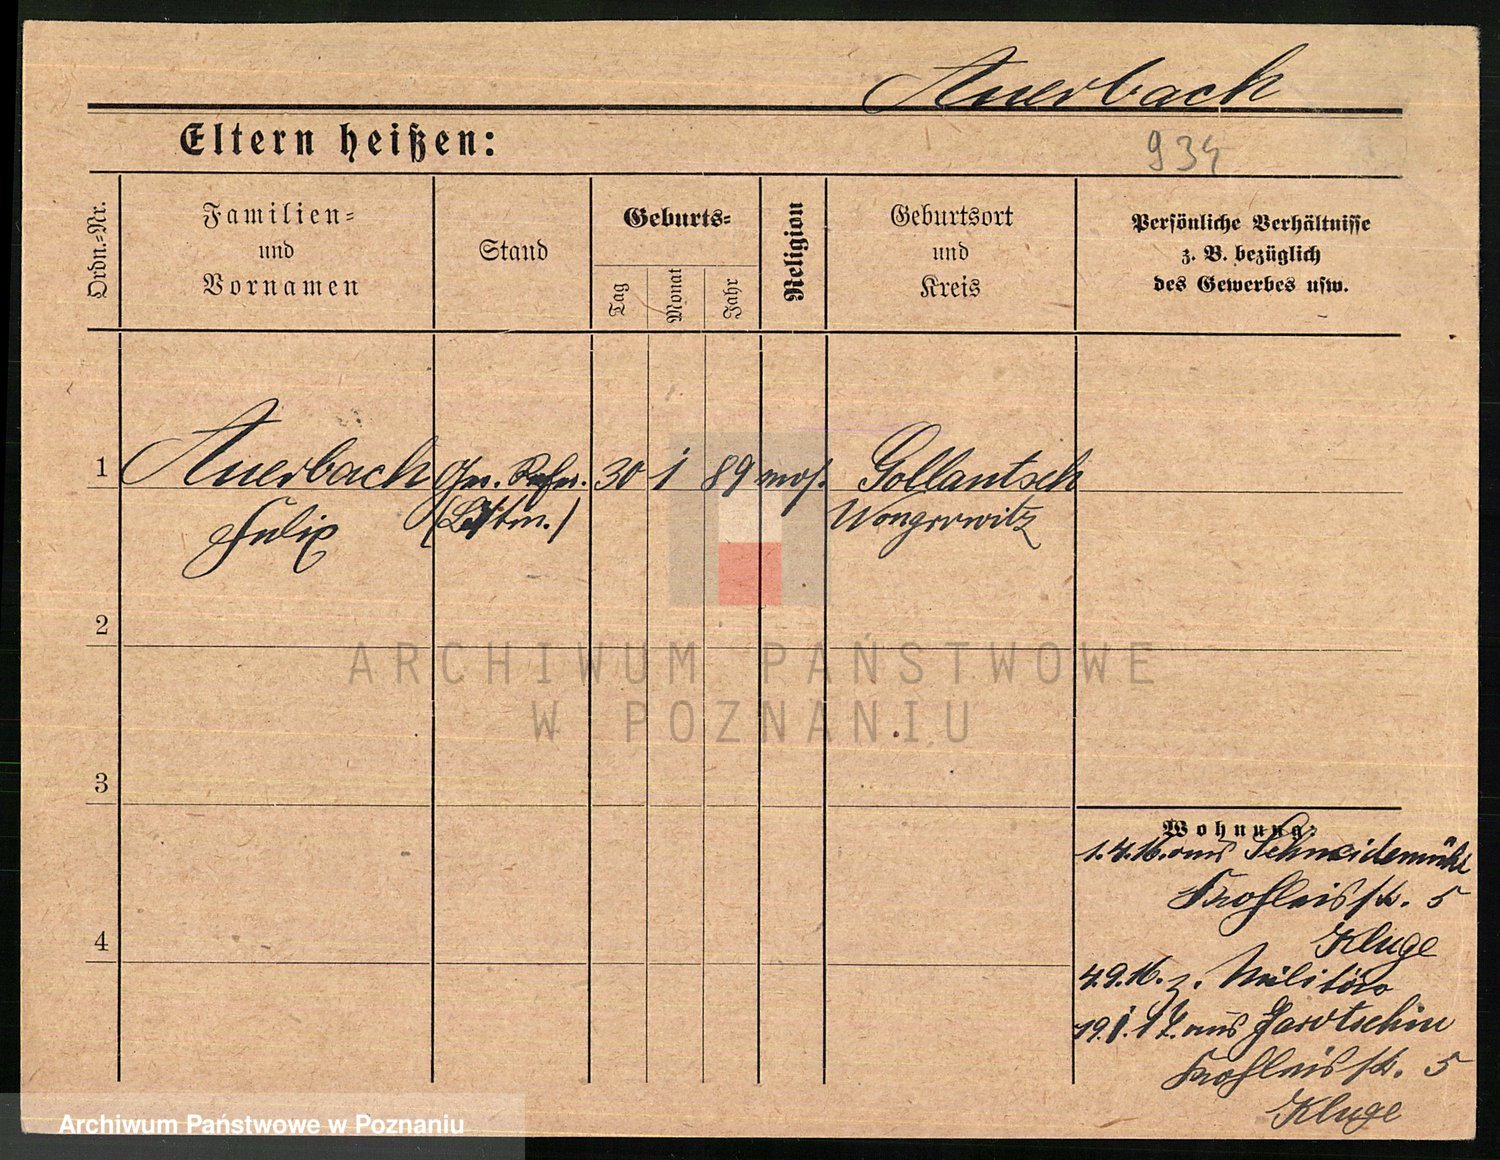 Auerbach
Eltern heißen:
934
Ordn.=Nr.
Familien=
und
Vornamen
Stand
Geburts=
Tag
Monat
Jahr
Religion
Geburtsort
und
Kreis
Persönliche Verhältnisse
z. B. bezüglich
des Gewerbes usw.
1
Auerbach
30 1 89 mos. Gollantsch
Julix
Wongrowitz
2
ARCHIWUM PAŃSTWOWE
W POZNANIU
3
Wohnung:
1.4.16. aus Schneidemühl
str. 5
Kluge
4
4.9.16. z. Militär
19.1.17. aus Jarotschin
str. 5
Kluge
Archiwum Państwowe w Poznaniu